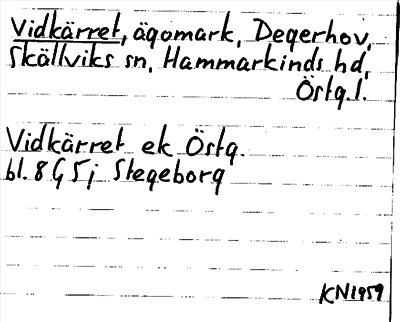 Vidkärret, ägomark, Degerhov,
Skällviks sn, Hammarkinds hd,
Östg. l.
Vidkärret ek Östg.
bl. 8 G 5 j Stegeborg
KN1959